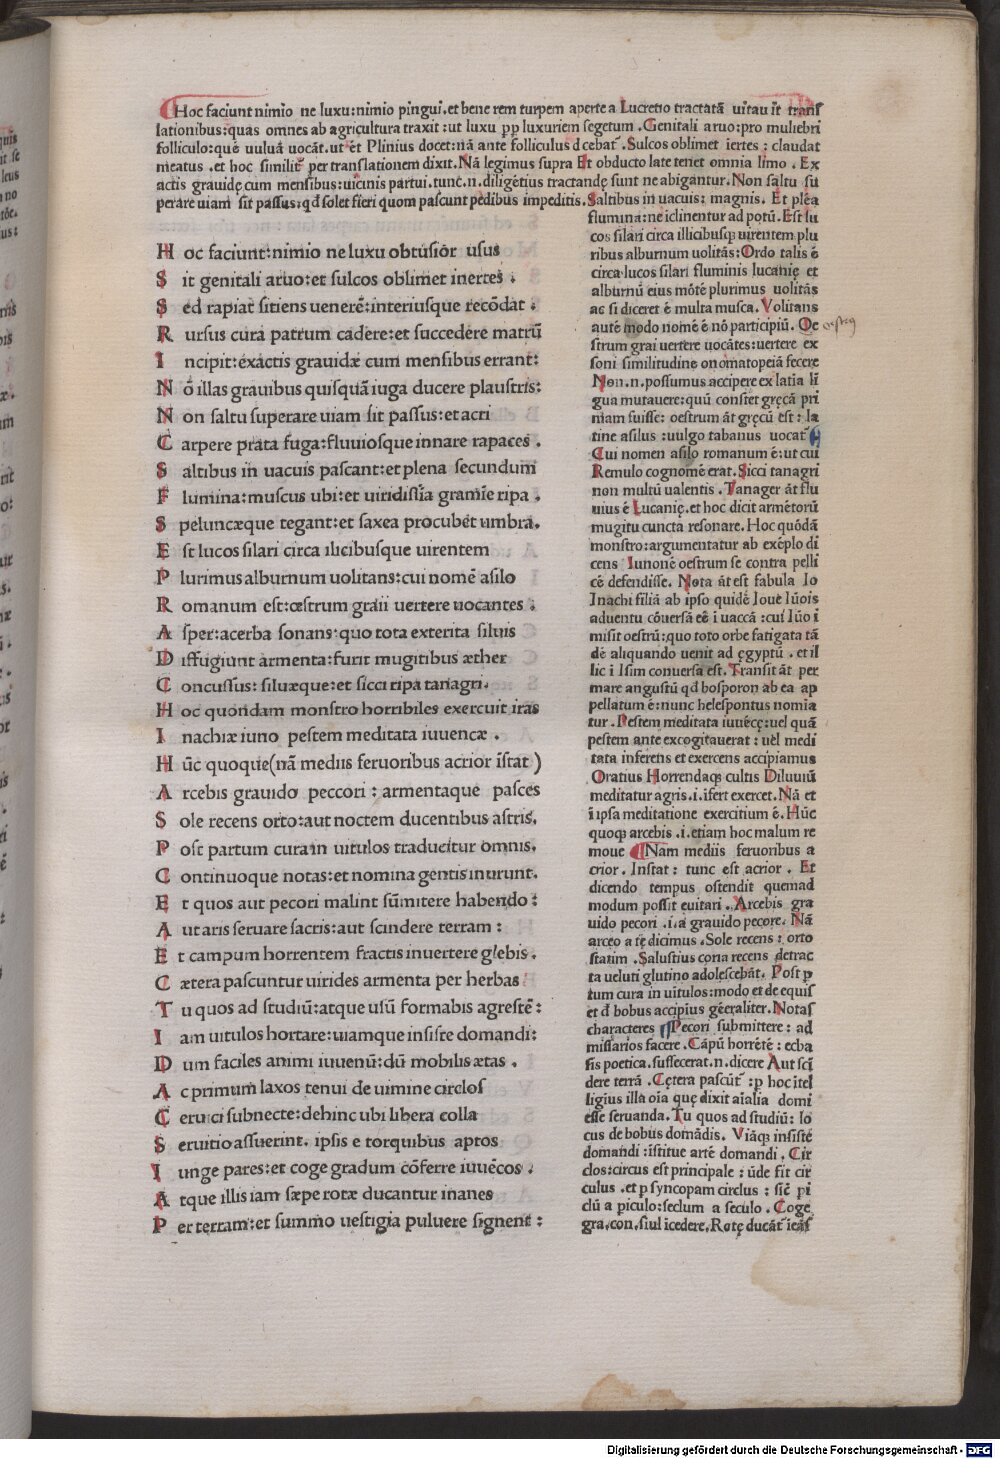 Hoc faciunt nimio ne luxu:nimio pingui.et bene rem turpem aperte a Lucretio tractatã uitauit transf
lationibus:quas omnes ab agricultura traxit:ut luxu pp luxuriem segetum.Genitali aruo:pro muliebri
folliculo:que uuluã uocãt.ut et Plinius docet:nã ante folliculus dcebat.Sulcos oblimet iertes:claudat
meatus.et hoc similit per translationem dixit.Nã legimus supra Et obducto late tenet omnia limo.Ex
actis grauidę cum mensibus:uicinis partui.tunc.n.diligẽtius tractandę sunt ne abigantur.Non saltu su
perare uiam sit passus:qđ solet fieri quom pascunt pedibus impeditis.Saltibus in uacuis:magnis.Et plẽa
flumina:ne iclinentur ad potũ.Est lu
cos silari circa illicibusq; uirentem plu
ribus alburnum uolitãs:Ordo talis ẽ
circa lucos silari fluminis lucanię et
alburnũ eius mõtẽ plurimus uolitãs
ac si diceret ẽ multa musca.Volitans
autẽ modo nomẽ ẽ nõ participiũ.Oe
strum grai uertere uocãtes:uertere ex
soni similitudine onomatopeiã fecere
Non.n.possumus accipere ex latia lĩ
gua mutauere:quũ constet gręcã pri
mam fuisse: oestrum ãt gręcũ est: la
tine asilus:uulgo tabanus uocat
Cui nomen asilo romanum ẽ:ut cui
Remulo cognomẽ erat.Sicci tanagri
non multũ ualentis.Tanager ãt flu
uius ẽ Lucanię.et hoc dicit armẽtorũ
mugitu cuncta resonare.Hoc quõdã
monstro:argumentatur ab exẽplo di
cens Iunonẽ oestrum se contra pelli
cẽ defendisse.Nota ãt est fabula Io
Inachi filiã ab ipso quidẽ Ioue Iũois
aduentu cõuersã eẽ i uaccã:cui Iũo i
misit oestrũ:quo toto orbe fatigata tã
dẽ aliquando uenit ad ęgyptũ.et il
lic i Isim conuersa est.Transit ãt per
mare angustũ qđ bosporon ab ea ap
pellatum ẽ:nunc helespontus nomia
tur.Pestem meditata iuuẽcę:uel quã
pestem ante excogitauerat: uel medi
tata inferens et exercens accipiamus
Oratius Horrendaq; cultis Diluuiũ
meditatur agris.i.ifert exercet.Nã et
ĩ ipsa meditatione exercitium ẽ.Hũc
quoq; arcebis.i.etiam hoc malum re
moue Nam mediis feruoribus a
crior.Instat: tunc est acrior. Et
dicendo tempus ostendit quemad
modum possit euitari.Arcebis gra
uido pecori.i.a grauido pecore.Nã
arceo a te dicimus.Sole recens: orto
statim.Salustius coria recens detrac
ta ueluti glutino adolescebãt.Post p
tum cura in uitulos:modo et de equis
et đ bobus accipius gẽeraliter.Notas
characteres Pecori submittere: ad
missarios facere.Cãpũ horrẽtẽ: ecba
sis poetica.suffecerat.n.dicere Aut scĩ
dere terrã.Cętera pascũt:p hoc itel
ligius illa oia quę dixit aialia domi
esse seruanda.Tu quos ad studiũ: lo
cus de bobus domãdis.Viãq; insistẽ
domandi:istitue artẽ domandi.Cir
clos:circus est principale: ũde fit cir
culus.et p syncopam circlus: sic̃ pi
clũ a piculo:seclum a seculo.Coge
gra.con.siul icedere.Rotę ducãt ieãs
oestrũ
H oc faciunt:nimio ne luxu obtusiõr usus
S it genitali aruo:et sulcos oblimet inertes.
S ed rapiat sitiens uenerẽ:interiusque recõdat.
R ursus cura patrum cadere:et succedere matrũ
I ncipit:exactis grauidæ cum mensibus errant:
N õ illas grauibus quisquã iuga ducere plaustris:
N on saltu superare uiam sit passus:et acri
C arpere prata fuga:fluuiosque innare rapaces.
S altibus in uacuis pascant:et plena secundum
F lumina:muscus ubi:et uiridissĩa gramĩe ripa.
S peluncæque tegant:et saxea procubẽt umbra.
E st lucos silari circa ilicibusque uirentem
P lurimus alburnum uolitans:cui nomẽ asilo
R omanum est:œstrum graii uertere uocantes.
A sper:acerba sonans:quo tota exterita siluis
D iffugiunt armenta:furit mugitibus æther
C oncussus: siluæque:et sicci ripa tanagri.
H oc quondam monstro horribiles exercuit iras
I nachiæ iuno pestem meditata iuuencæ.
H ũc quoque(nã mediis feruoribus acrior ĩstat)
A rcebis grauido peccori: armentaque pasces
S ole recens orto:aut noctem ducentibus astris.
P ost partum cura in uitulos traducitur omnis.
C ontinuoque notas:et nomina gentis inurunt.
E t quos aut pecori malint sũmitere habendo:
A ut aris seruare sacris:aut scindere terram:
E t campum horrentem fractis inuertere glebis.
C ætera pascuntur uirides armenta per herbas
T u quos ad studiũ:atque usũ formabis agrestẽ:
I am uitulos hortare:uiamque insiste domandi:
D um faciles animi iuuenũ:dũ mobilis ætas.
A c primum laxos tenui de uimine circlos
C eruici subnecte:dehinc ubi libera colla
S eruitio assuerint. ipsis e torquibus aptos
I unge pares:et coge gradum cõferre iuuẽcos.
A tque illis iam sæpe rotæ ducantur inanes
P er terram:et summo uestigia puluere signent:
Digitalisierung gefördert durch die Deutsche Forschungsgemeinschaft - DFG